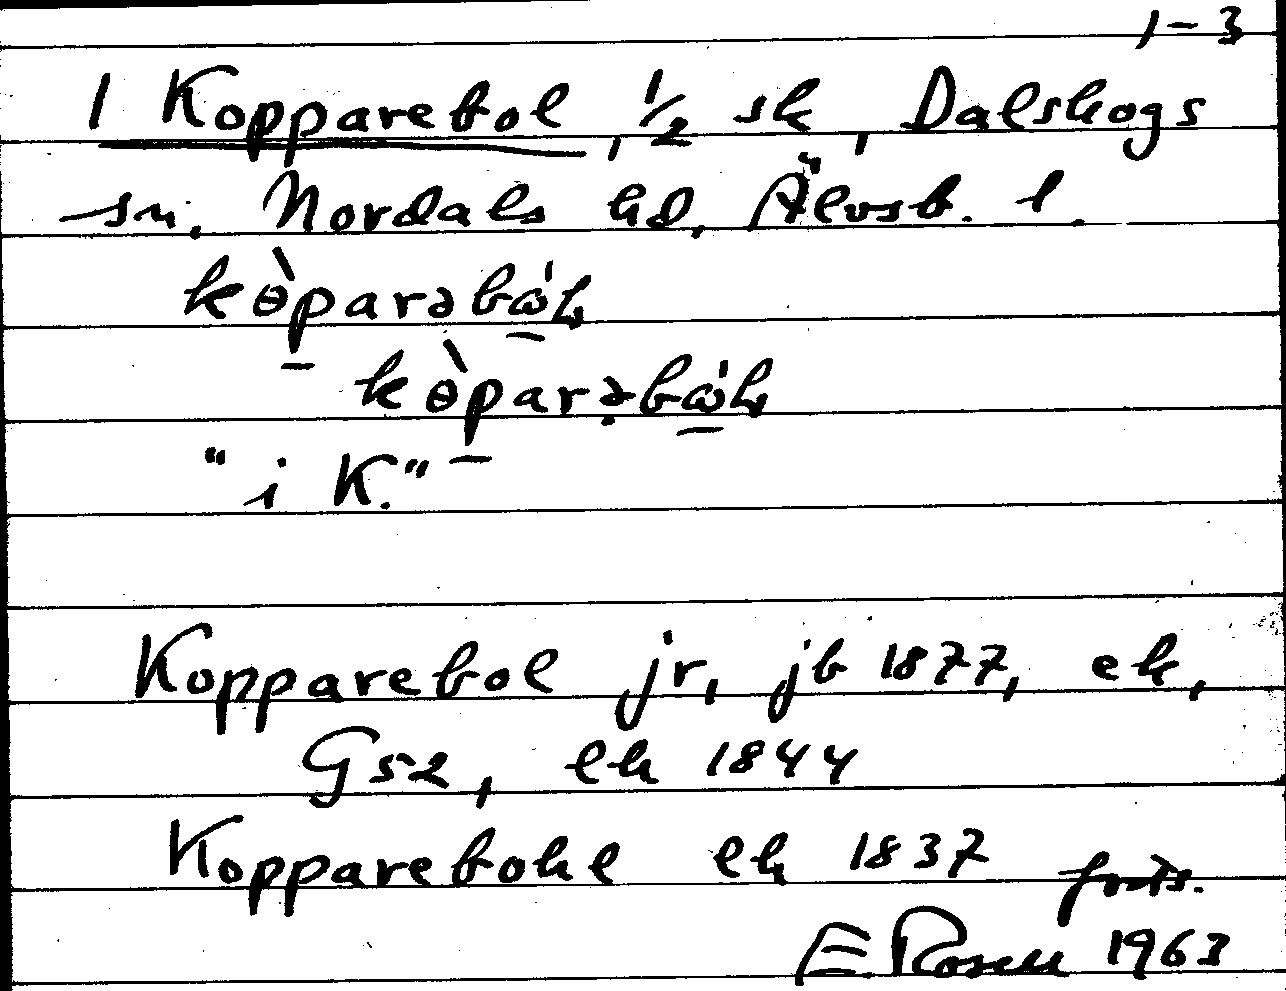 1-3
1 Kopparebol, 1/2 sk, Dalskogs
sn. Nordals hd, Älvsb. l.
kɵ̀parəbώ̲ɫ
kɵ̀parə̣bώ̲ɫ
"i K."
Kopparebol jr, jb 1877, ek,
Gs2, lk 1844
Kopparebohl lk 1837 forts.
E. Rosell 1963